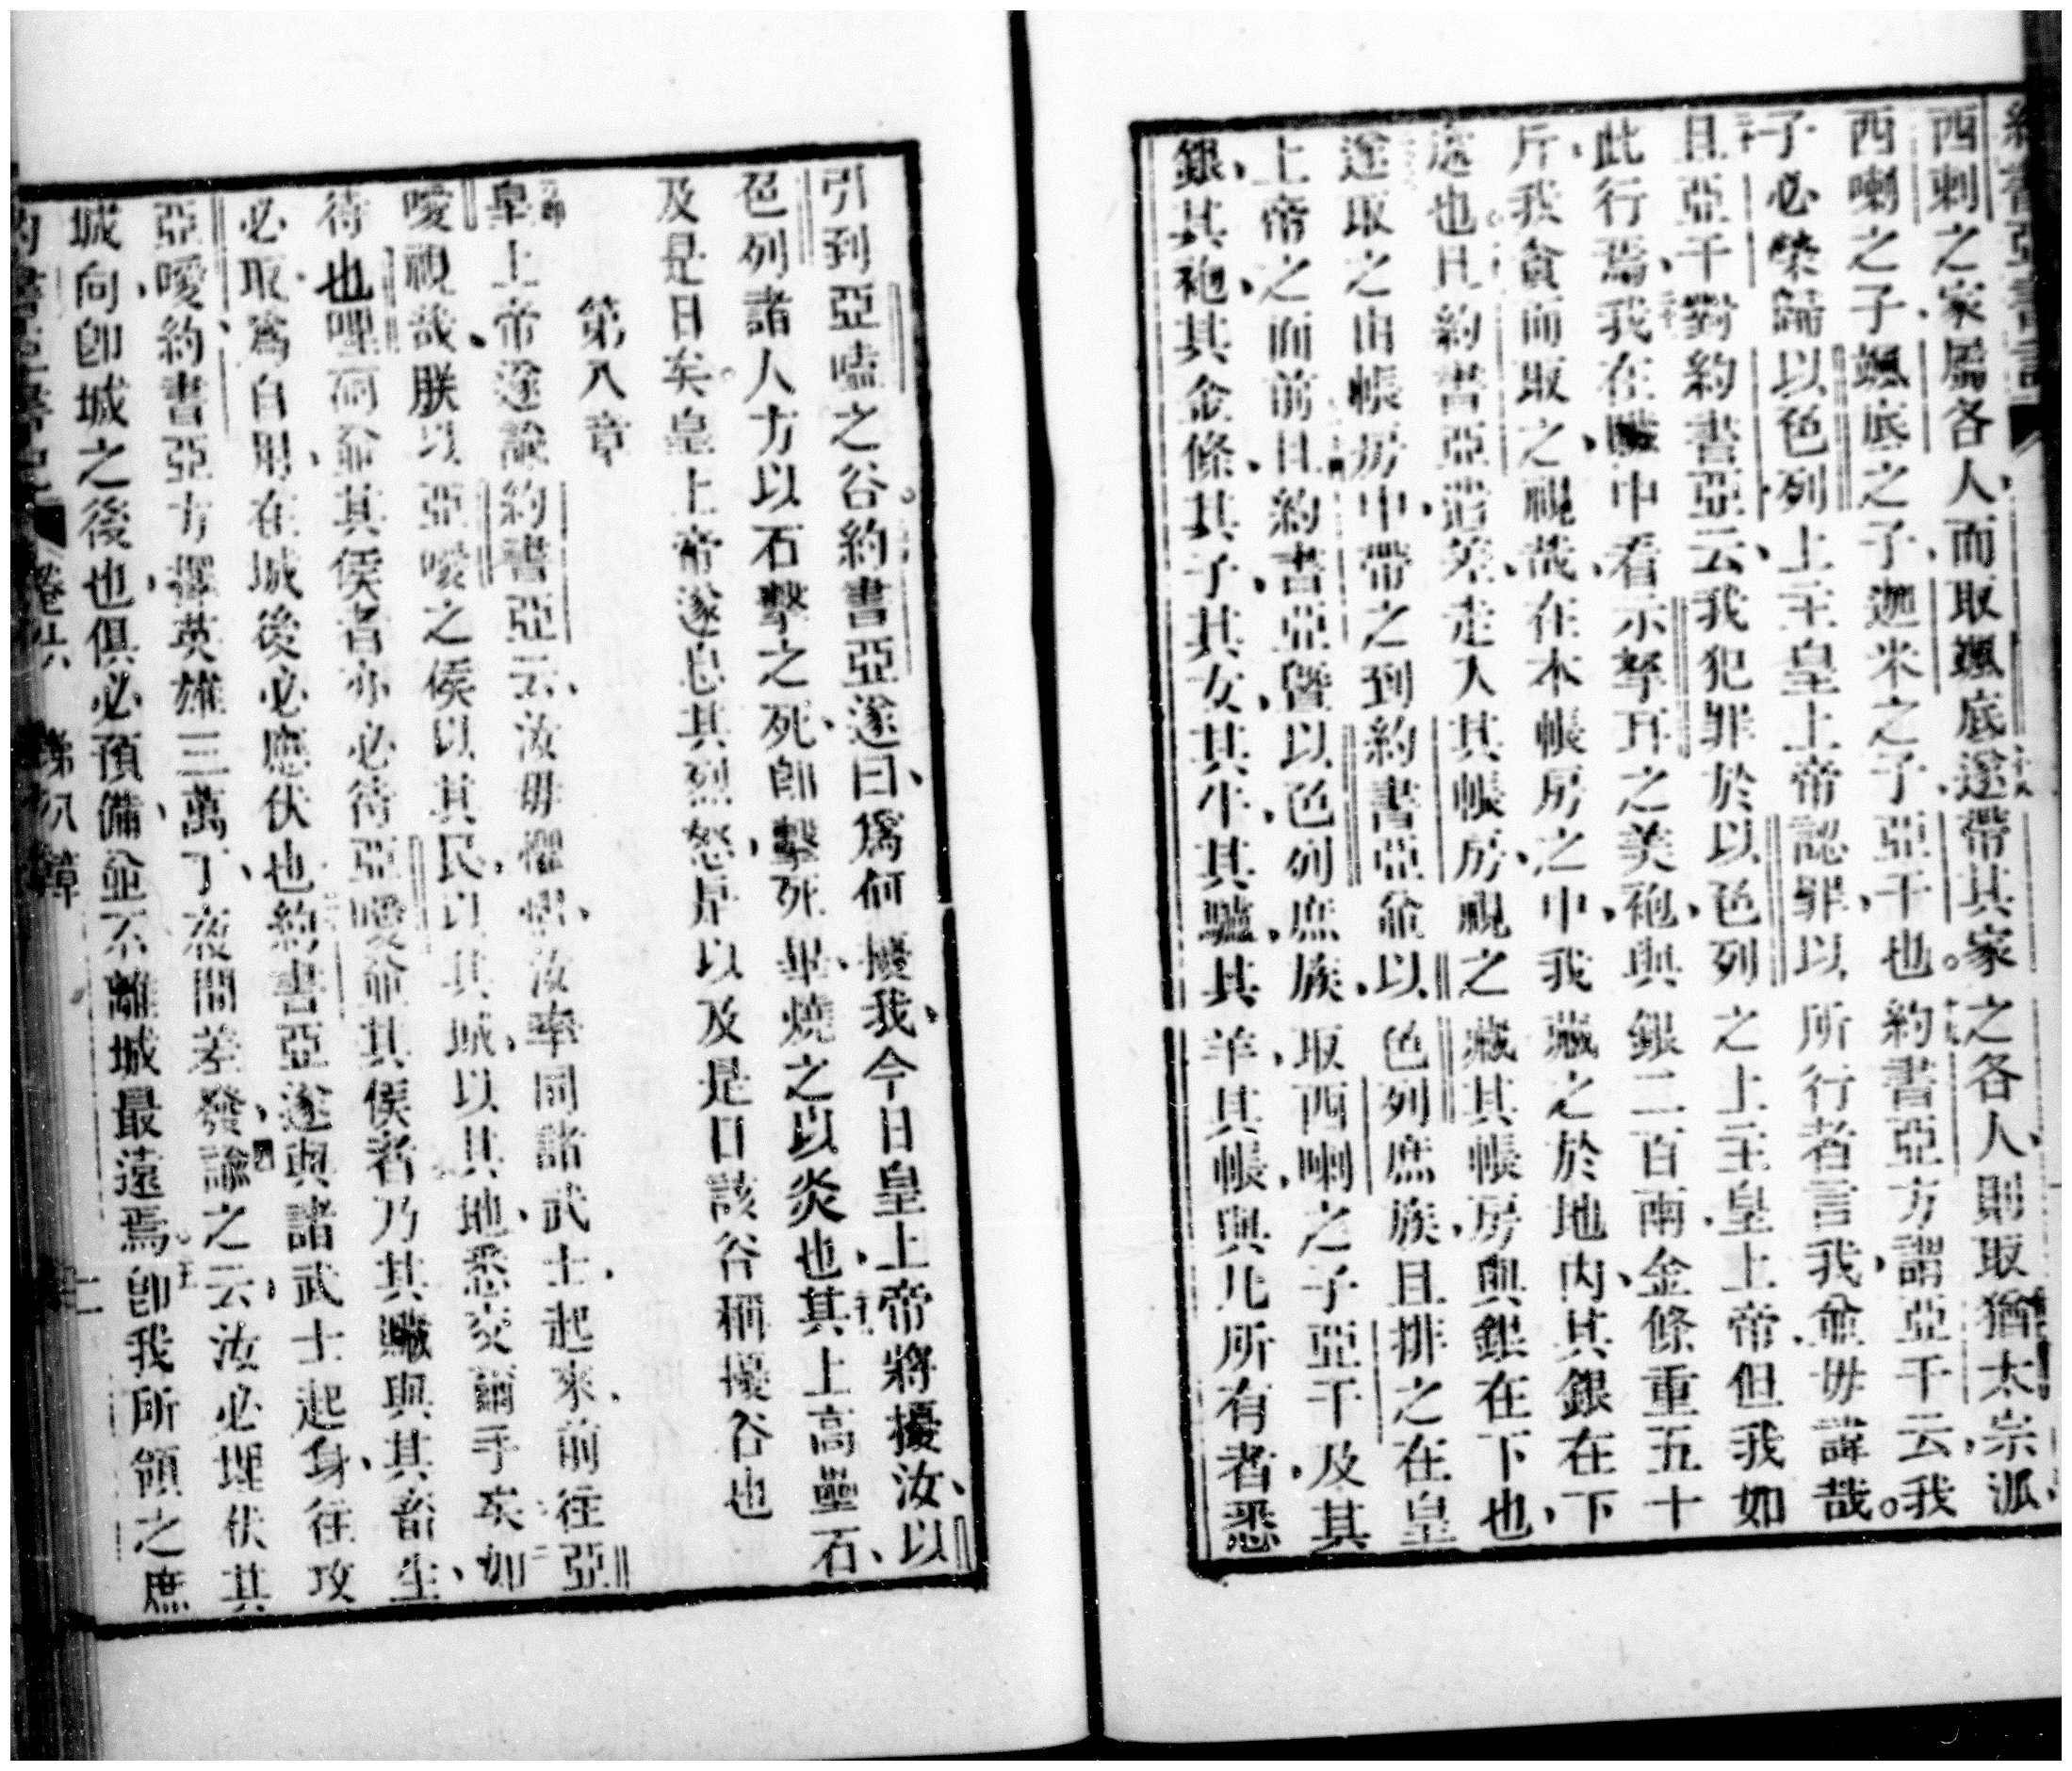 約書亞書記
西剌之家屬各人而取颯底遂帶其家之各人則取猶太宗派
西喇之子颯底之子迦米之子亞干也約書亞方謂亞干云我
子必榮歸以色列上主皇上帝認罪以所行者言我並毋諱哉
且亞干對約書亞云我犯罪於以色列之上主皇上帝但我如
此行焉我在贓中看示拏耳之美袍與銀二百兩金條重五十
斤我貪而取之視哉在本帳房之中我藏之於地內其銀在下
處也且約書亞遣差走入其帳房視之藏其帳房與銀在下也
遂取之由帳房中帶之到約書亞並以色列庶族且排之在皇
上帝之面前且約書亞曁以色列庶族取西喇之子亞干及其
銀其袍其金條其子其女其牛其驢其羊其帳與凡所有者悉
引到亞嗑之谷約書亞遂曰爲何擾我今日皇上帝將擾汝以
色列諸人方以石擊之死卽擊死畢燒之以炎也其上高壘石
及是日矣皇上帝遂息其烈怒是以及是日該谷稱擾谷也
第八章
皇上帝遂諭約書亞云汝毋懼惧汝率同諸武士起來前往亞
噯視哉朕以亞噯之侯以其民以其城以其地悉交爾手矣如
待也哩哥並其侯者亦必待亞噯並其侯者乃其贓與其畜生
必取爲自用在城後必應伏也約書亞遂與諸武士起身往攻
亞噯約書亞方擇英雄三萬丁夜間差發諭之云汝必埋伏其
城向卽城之後也俱必預備並不離城最遠焉卽我所領之庶
約書亞書記 卷六 第八章 十二